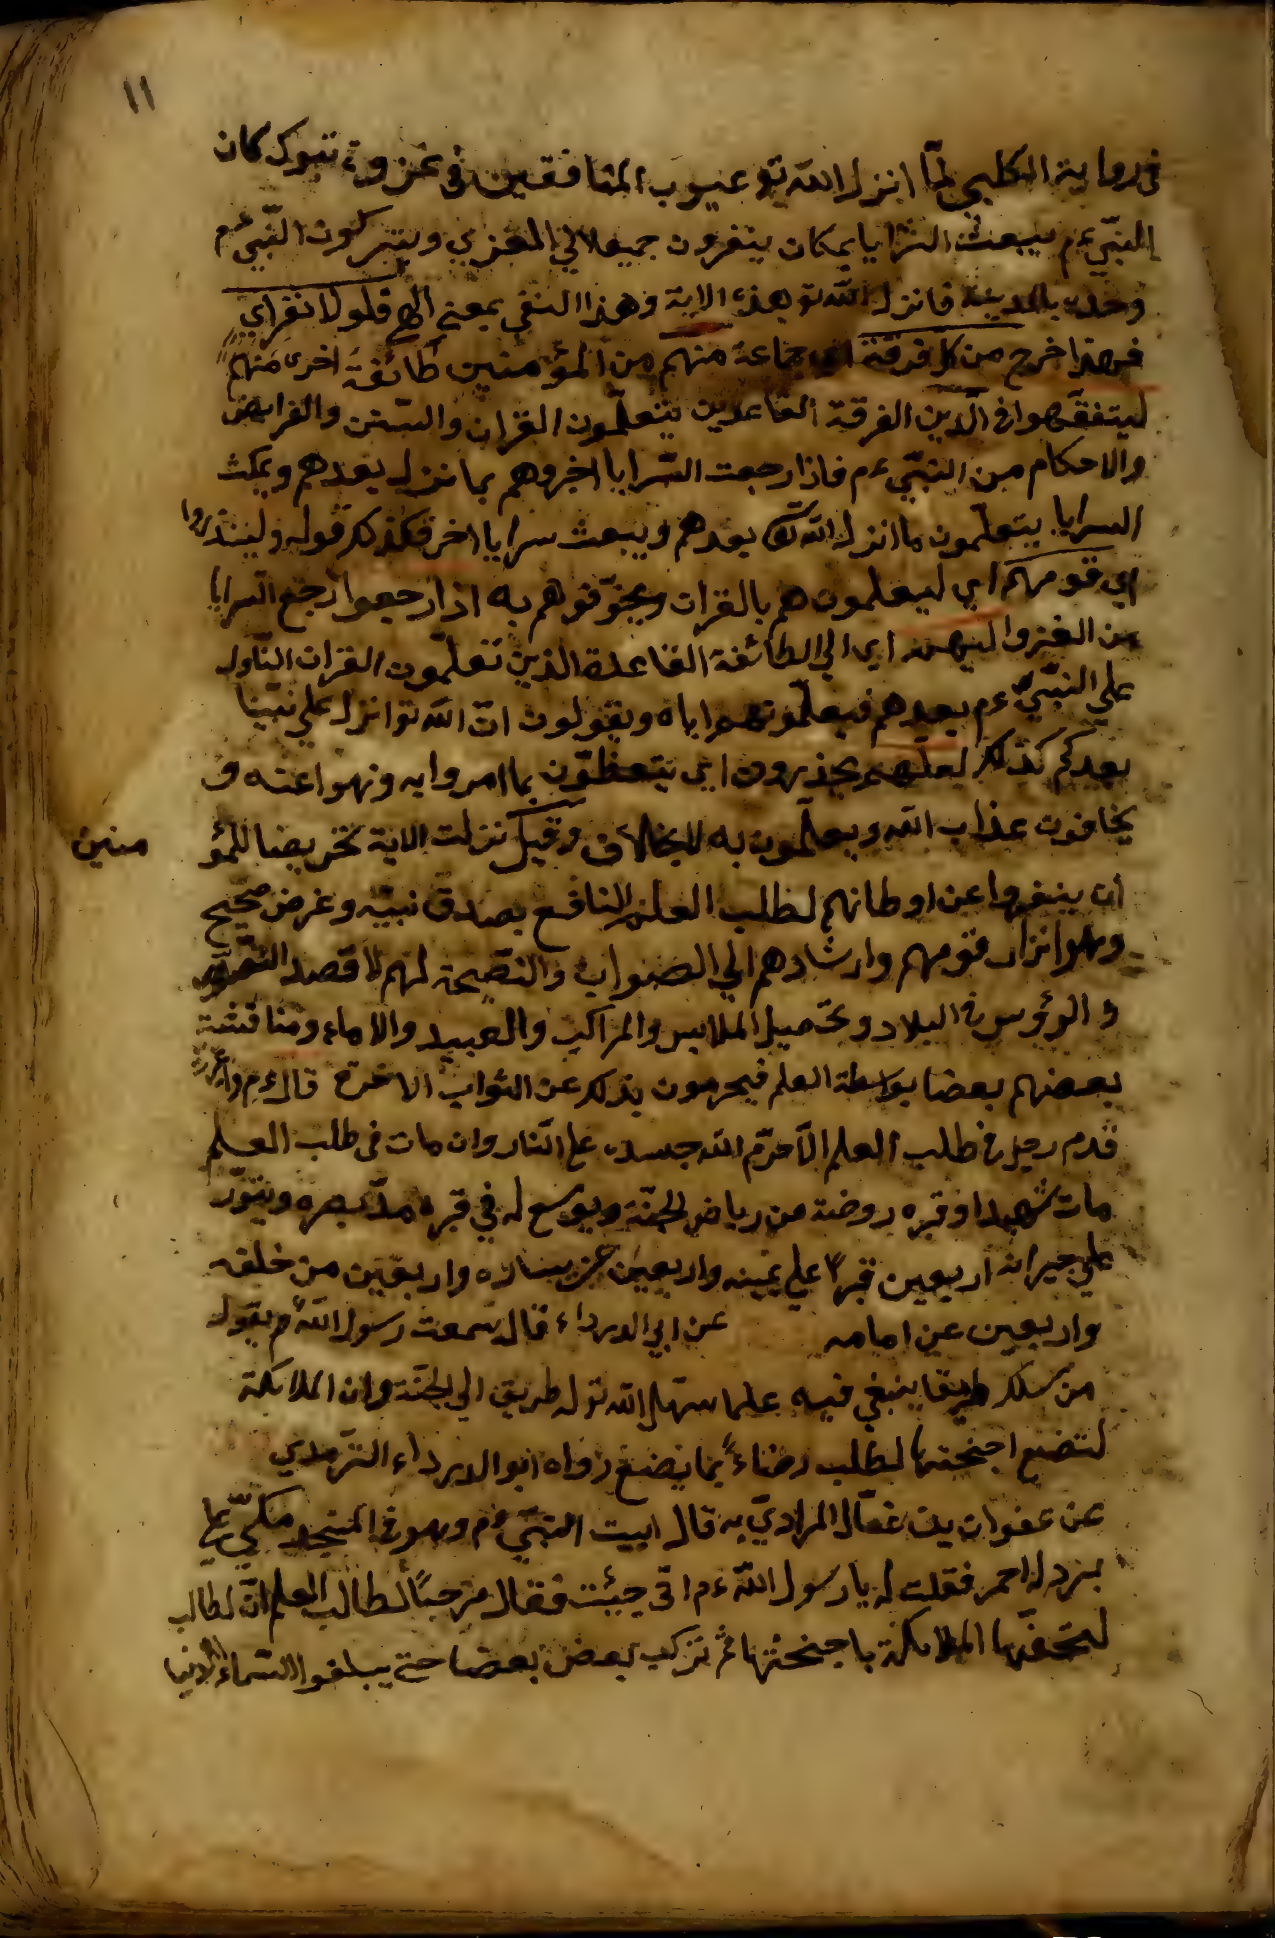 ١١
فى رواية الكلبى لمّا انزل الله تع عيوب المنافقين فى غزوة تبوك كان
النبىّ ءم يبعث السرايا فكان ينفرون جميعا الي المغزي ويتركون النّبي ءم
وحده بالمدينة فانزل الله تع هذه الاية وهذا النفي بمعني النهي فلولا نفر اي
فهلا خرج من كل فرقة اي جماعة منهم من المؤمنين طائفة اخرى منهم
ليتفقّهوا في الدّين الفرقة القاعدين يتعلّمون القران والسّنن والفرايض
والاحكام من النبّي ءم فاذا رجعت السّرايا اخبروهم بما نزل بعدهم ويمكث
السرايا يتعلّمون ما انزل الله تع بعدهم ويبعث سرايا اخر فكذلك قوله ولينذروا
اي قومهم اي ليعلمون هم بالقران ويخوّفوهم به اذا رجعوا رجع السّرايا
من الغزو اليهم اي الي الطائفة القاعدة الذين تعلّمون القران النّازل
علي النبّي ءم بعدهم فيعلّمونهم اياه ويقولون انّ الله تع انزل علي نبيّنا
بعدكم كذلك لعلّهم يحذرون اي يتعظّون بما امروا به ونهوا عنه و
يخافون عذاب الله ويعلّمون به للخلاف وقيل نزلت الاية تحريضا للمؤ منين
ان ينفروا عن اوطانهم لطلب العلم النافع بصدق نبيّه وغرض صحيح
وهو انذار قومهم وارشادهم الي الصواب والنّصيحة لهم لا قصد
و الرؤس في البلاد وتحصيل الملابس والمراكب والعبيد والاماء ومناقشة
بعضهم بعضا بواسطة العلم فيحرمون بذلك عن الثواب الاخرة قال ءم
قدم رجل في طلب العلم الّا حرّم الله جسده علي النّار وان مات فى طلب العلم
مات شهيدا وقبره روضة من رياض الجنّة ويوسع له في قبره مدّ بصره وينوّر
علي جيرانه اربعين قبرًا علي يمينه واربعين عن يساره واربعين من خلفه
واربعين عن امامه عن ابي الدرداء قال سمعت رسول الله ءم يقول
من سلك طريقا ينبغي فيه علما سهّل الله تع له طريق الي الجنّة وان الملائكة
لتضع اجنحتها لطلب رضاءً بما يضع رواه ابو الدرداء الترمدي
عن صفوان بن عسّال المراديّ قال اتيت النبّي ءم وهو في المسجد متكئ علي
برد له احمر فقلت له يا رسول الله ءم انّى جيئت فقال مرحبًا لطالب العلم انّ لطالب
لتحفّها الملائكة باجنحتها ثم تركب بعض بعضا حتي يبلغوا السّماء الدنيا